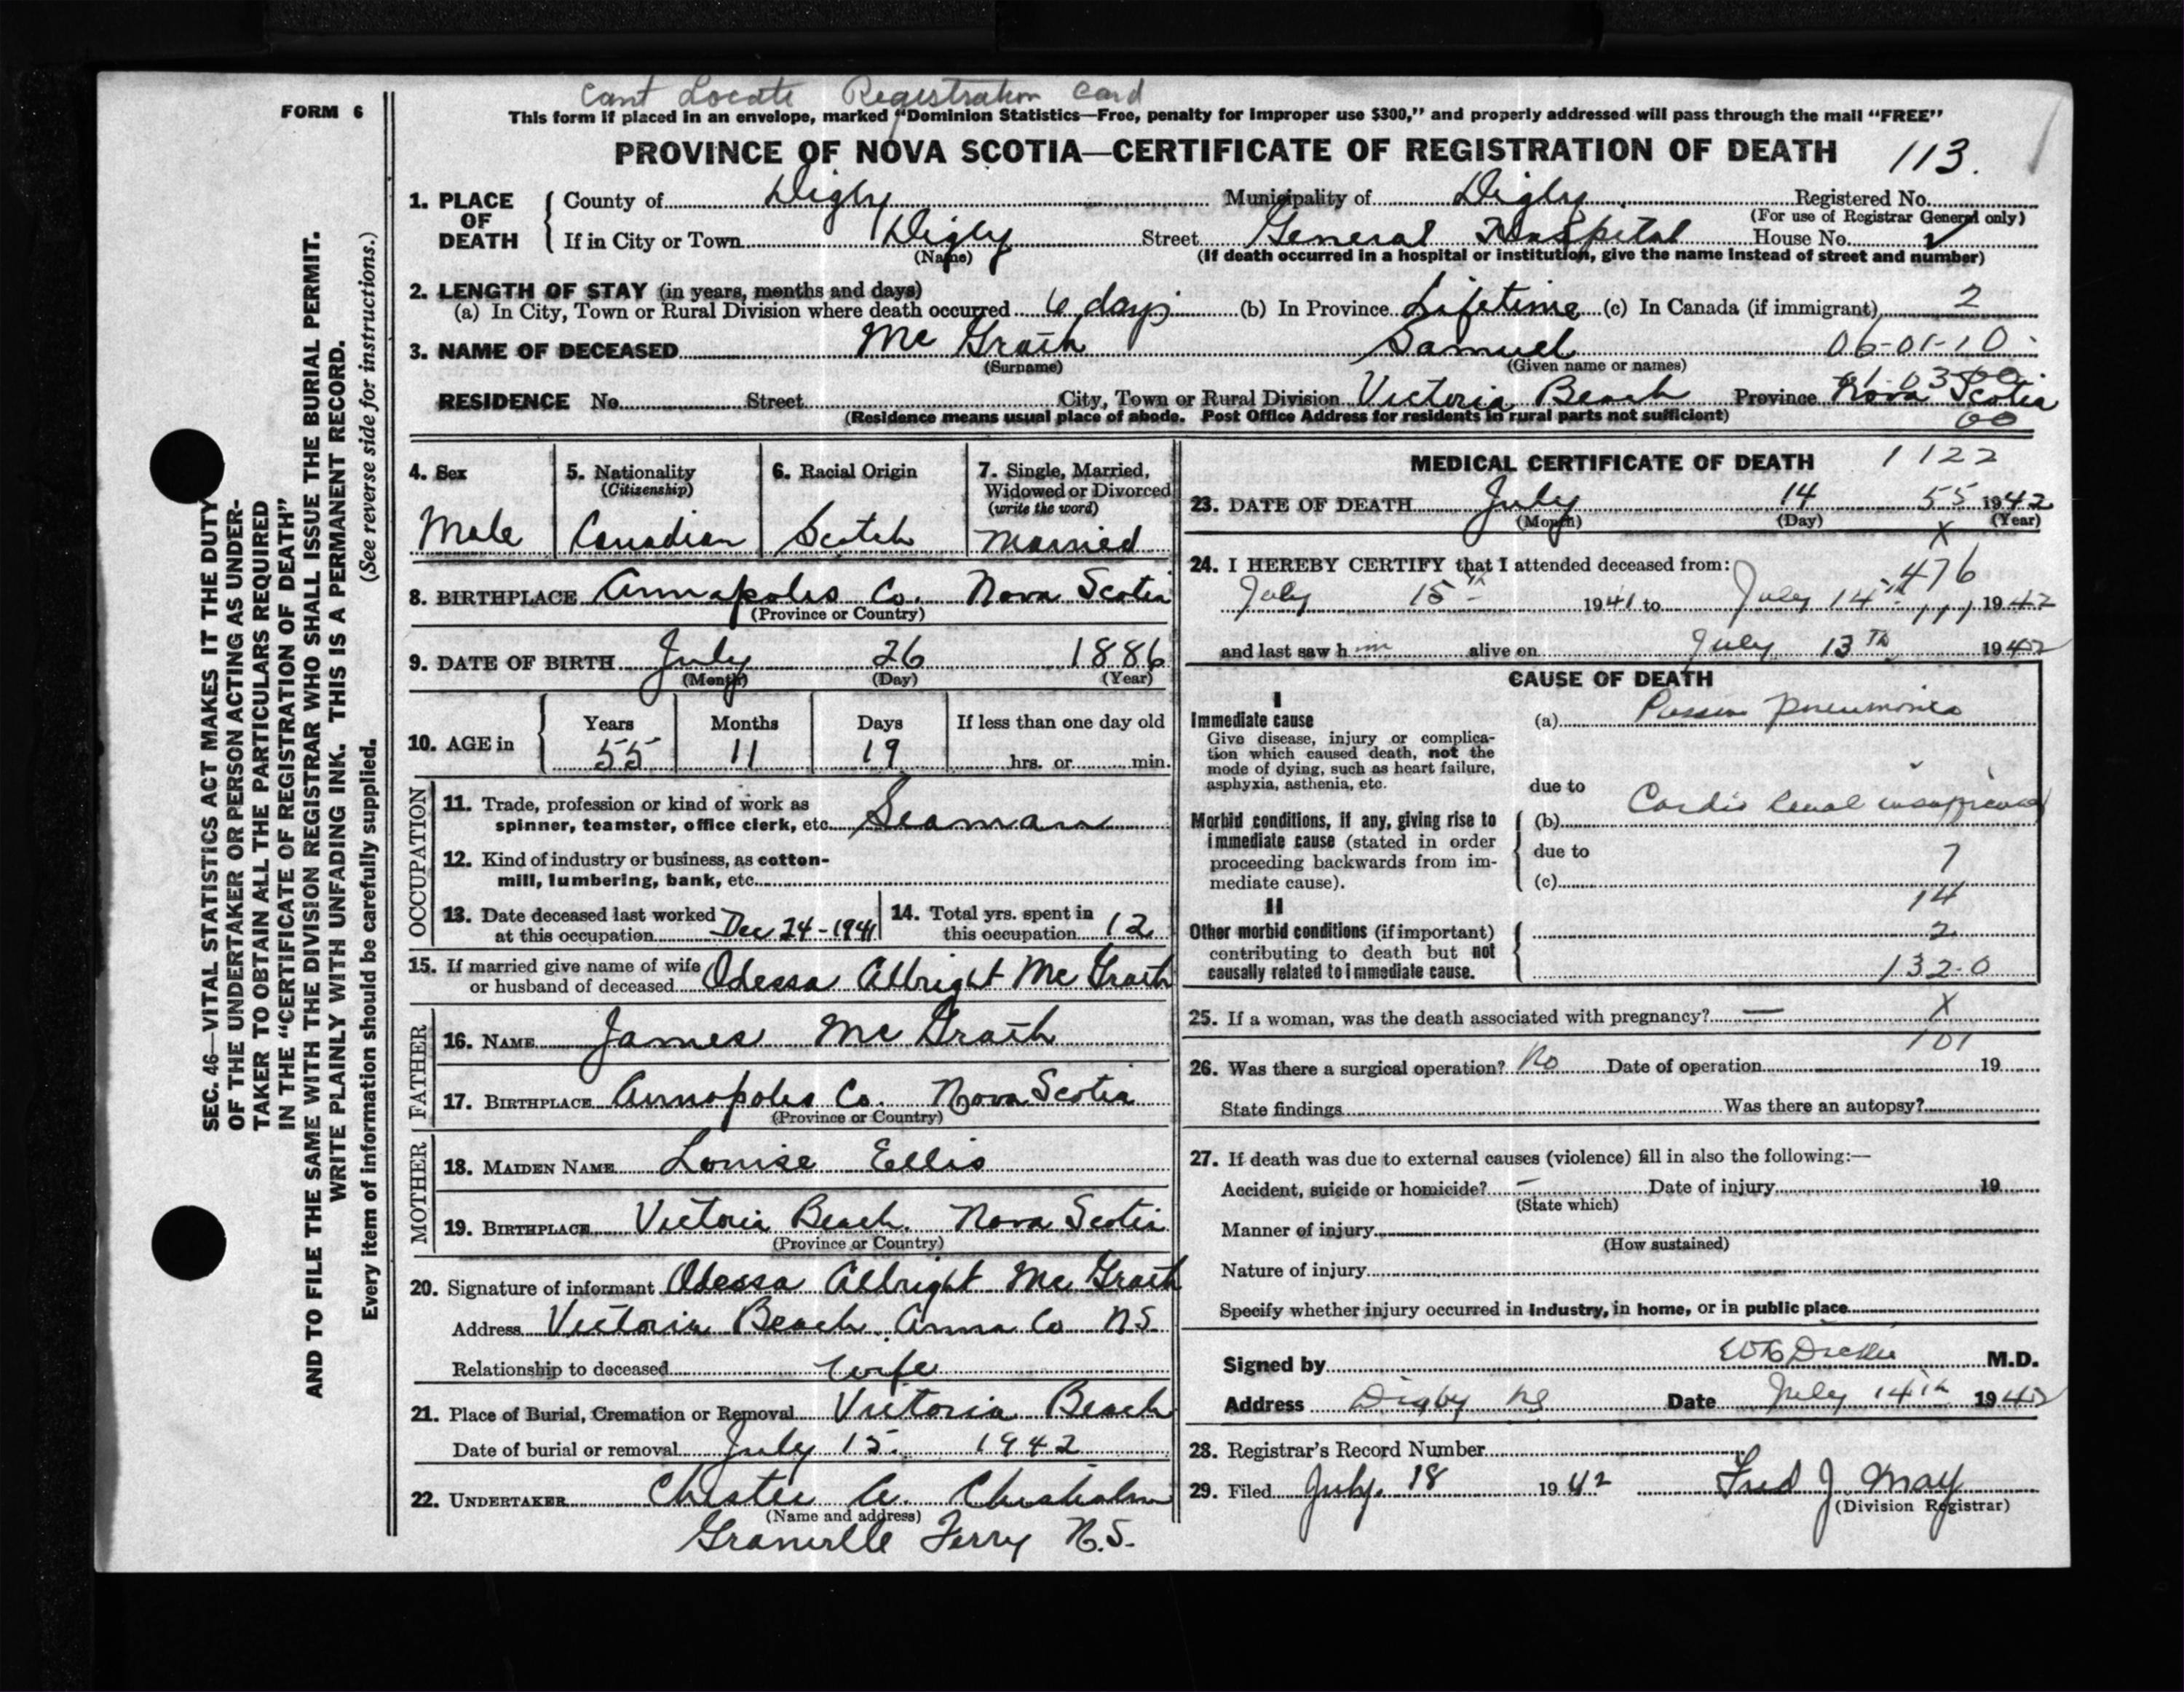 Cant Locate Registration Card
FORM 6
This form if placed in an envelope, marked "Dominion Statistics—Free, penalty for improper use $300," and properly addressed will pass through the mail "FREE"
PROVINCE OF NOVA SCOTIA—CERTIFICATE OF REGISTRATION OF DEATH 113.
1. PLACE OF DEATH
County of Digby Municipality of Digby Registered No.
(For use of Registrar General only)
If in City or Town Digby Street General Hospital House No.
(Name) (If death occurred in a hospital or institution, give the name instead of street and number)
2. LENGTH OF STAY (in years, months and days)
(a) In City, Town or Rural Division where death occurred 6 days (b) In Province Lifetime (c) In Canada (if immigrant) 2
3. NAME OF DECEASED Mc Grath Samuel 06-01-10
(Surname) (Given name or names)
01-03-00
RESIDENCE No. Street City, Town or Rural Division Victoria Beach Province Nova Scotia
(Residence means usual place of abode. Post Office Address for residents in rural parts not sufficient) 00
4. Sex
Male
5. Nationality
(Citizenship)
Canadian
6. Racial Origin
Scotch
7. Single, Married,
Widowed or Divorced
(write the word)
Married
8. BIRTHPLACE Annapolis Co. Nova Scotia
(Province or Country)
9. DATE OF BIRTH July 26 1886
(Month) (Day) (Year)
10. AGE in
Years Months Days If less than one day old
55 11 19 hrs. or min.
OCCUPATION
11. Trade, profession or kind of work as
spinner, teamster, office clerk, etc. Seaman
12. Kind of industry or business, as cotton-
mill, lumbering, bank, etc.
13. Date deceased last worked
at this occupation Dec 24-1941
14. Total yrs. spent in
this occupation 12
15. If married give name of wife
or husband of deceased Odessa Albright Mc Grath
FATHER
16. NAME James Mc Grath
17. BIRTHPLACE Annapolis Co. Nova Scotia
(Province or Country)
MOTHER
18. MAIDEN NAME Louise Ellis
19. BIRTHPLACE Victoria Beach. Nova Scotia
(Province or Country)
20. Signature of informant Odessa Albright Mc Grath
Address Victoria Beach Anna Co NS
Relationship to deceased wife
21. Place of Burial, Cremation or Removal Victoria Beach
Date of burial or removal July 15. 1942
22. UNDERTAKER Chester A. Chisholm
(Name and address)
Granville Ferry N.S.
MEDICAL CERTIFICATE OF DEATH 1122
23. DATE OF DEATH July 14 55 1942
(Month) (Day) (Year)
X
24. I HEREBY CERTIFY that I attended deceased from:
476
July 15th 1941 to July 14th 1942
and last saw h im alive on July 13th 1942
CAUSE OF DEATH
I
Immediate cause
Give disease, injury or complica-
tion which caused death, not the
mode of dying, such as heart failure,
asphyxia, asthenia, etc.
(a) Passive pneumonia
due to
Morbid conditions, if any, giving rise to
immediate cause (stated in order
proceeding backwards from im-
mediate cause).
(b) Cardio Renal
due to
7
(c)
14
II
Other morbid conditions (if important)
contributing to death but not
causally related to immediate cause.
2
132-0
25. If a woman, was the death associated with pregnancy? — X
101
26. Was there a surgical operation? No Date of operation 19
State findings Was there an autopsy?
27. If death was due to external causes (violence) fill in also the following:—
Accident, suicide or homicide? — Date of injury 19
(State which)
Manner of injury
(How sustained)
Nature of injury
Specify whether injury occurred in industry, in home, or in public place
Signed by M.D.
Address Digby NS Date July 14th 1942
28. Registrar's Record Number
29. Filed July. 18 1942 Fred J. May
(Division Registrar)
SEC. 46—VITAL STATISTICS ACT MAKES IT THE DUTY
OF THE UNDERTAKER OR PERSON ACTING AS UNDER-
TAKER TO OBTAIN ALL THE PARTICULARS REQUIRED
IN THE "CERTIFICATE OF REGISTRATION OF DEATH"
AND TO FILE THE SAME WITH THE DIVISION REGISTRAR WHO SHALL ISSUE THE BURIAL PERMIT.
WRITE PLAINLY WITH UNFADING INK. THIS IS A PERMANENT RECORD.
Every item of information should be carefully supplied. (See reverse side for instructions.)